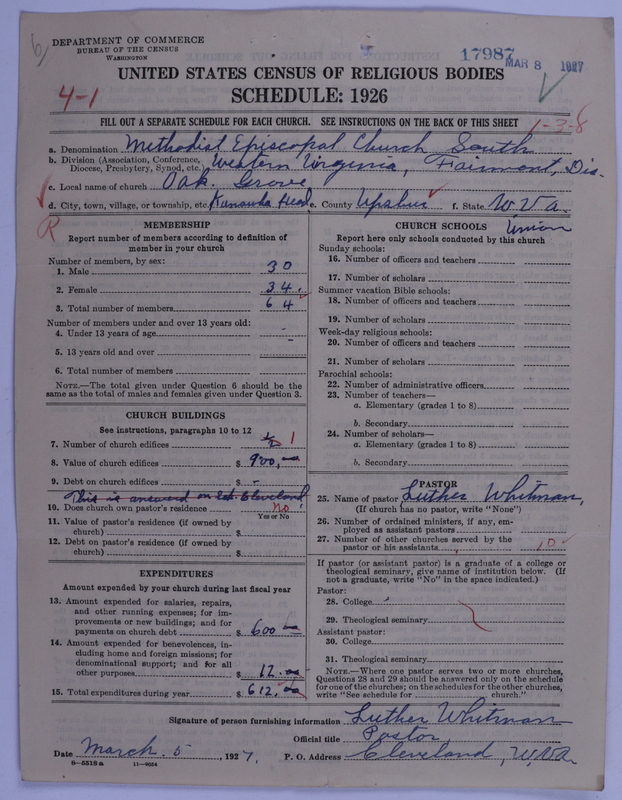 DEPARTMENT OF COMMERCE
BUREAU OF THE CENSUS
WASHINGTON
17987
MAR 8 1927
UNITED STATES CENSUS OF RELIGIOUS BODIES
4-1
SCHEDULE: 1926
FILL OUT A SEPARATE SCHEDULE FOR EACH CHURCH. SEE INSTRUCTIONS ON THE BACK OF THIS SHEET
1-3-8
a. Denomination Methodist Episcopal Church South
b. Division (Association, Conference, Diocese, Presbytery, Synod, etc.) Western Virginia, Fairmont, Dis.
c. Local name of church Oak Grove
d. City, town, village, or township, etc. Kanawha Head e. County Upshur f. State W.Va.
R
MEMBERSHIP
Report number of members according to definition of
member in your church
Number of members, by sex:
1. Male 30
2. Female 34.
3. Total number of members 64
Number of members under and over 13 years old:
4. Under 13 years of age -
5. 13 years old and over -
6. Total number of members
NOTE.—The total given under Question 6 should be
same as the total of males and females given under Question 3.
CHURCH BUILDINGS
See instructions, paragraphs 10 to 12
7. Number of church edifices 1/2 1
8. Value of church edifices $ 900,
9. Debt on church edifices $ -
This is answered on Cleveland
10. Does church own pastor's residence no
Yes or No
11. Value of pastor's residence (if owned by
church) $
12. Debt on pastor's residence (if owned by
church) $
EXPENDITURES
Amount expended by your church during last fiscal year
13. Amount expended for salaries, repairs,
and other running expenses; for im-
provements or new buildings; and for
payments on church debt $ 600
14. Amount expended for benevolences, in-
cluding home and foreign missions; for
denominational support; and for all
other purposes $ 12.00
15. Total expenditures during year $ 612.00
CHURCH SCHOOLS Union
Report here only schools conducted by this church
Sunday schools:
16. Number of officers and teachers
17. Number of scholars
Summer vacation Bible schools:
18. Number of officers and teachers
19. Number of scholars
Week-day religious schools:
20. Number of officers and teachers
21. Number of scholars
Parochial schools:
22. Number of administrative officers
23. Number of teachers—
a. Elementary (grades 1 to 8)
b. Secondary
24. Number of scholars—
a. Elementary (grades 1 to 8)
b. Secondary
PASTOR
25. Name of pastor Luther Whitman,
(If church has no pastor, write "None")
26. Number of ordained ministers, if any, em-
ployed as assistant pastors
27. Number of other churches served by the
pastor or his assistants
If pastor (or assistant pastor) is a graduate of a college or
theological seminary, give name of institution below. (If
not a graduate, write "No" in the space indicated.)
Pastor:
28. College
29. Theological seminary
Assistant pastor:
30. College
31. Theological seminary
NOTE.—Where one pastor serves two or more churches,
Questions 28 and 29 should be answered only on the schedule
for one of the churches; on the schedules for the other churches,
write "See schedule for church."
Signature of person furnishing information Luther Whitman
Official title Pastor
Date March 5, 1927. P. O. Address Cleveland, W.Va.
8-5518a 11-9054